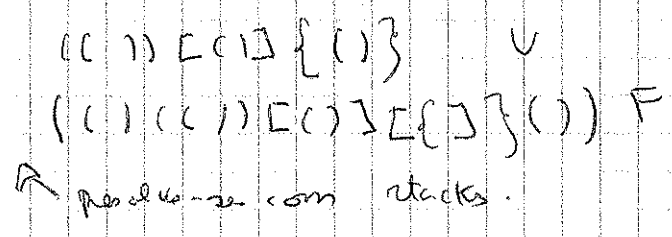 (())[()]{()} V
(()(())[()][{]}()) F
resolve-se com stacks.